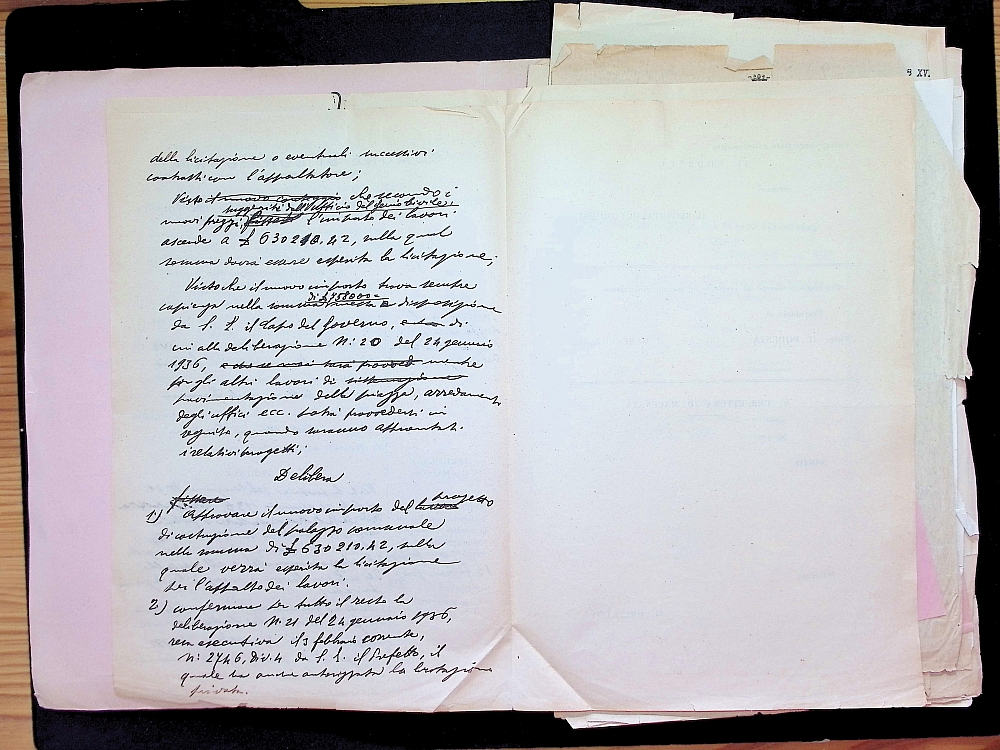 -:0:-
5 XV.
della licitazione o eventuali successivi
contratti con l'appaltatore;
Visto il nuovo conteggio che secondo i
suggeriti dall'Ufficio del Genio Civile,
nuovi prezzi, l'importo dei lavori
ascende a £ 630210.42, sulla qual
somma dovrà essere esperita la licitazione;
Visto che il nuovo importo trova sempre
di £ 758000=
capienza nella somma messa a disposizione
da S. E. il Capo del Governo, di
cui alla deliberazione N: 20 del 24 gennaio
1936, mentre
per gli altri lavori di sistemazione
pavimentazione della piazza, arredamento
degli uffici ecc. potrà provvedersi in
seguito, quando saranno approntati
i relativi progetti;
Delibera
fissare
progetto
1) Approvare il nuovo importo del lavoro
di costruzione del palazzo comunale
nella somma di £ 630210.42, sulla
quale verrà esperita la licitazione
per l'appalto dei lavori.
2) confermare per tutto il resto la
deliberazione N. 21 del 24 gennaio 1936,
resa esecutiva il 3 febbraio corrente,
N: 2746, Div. 4 da S. E. il Prefetto, il
quale ha anche autorizzata la licitazione
privata.